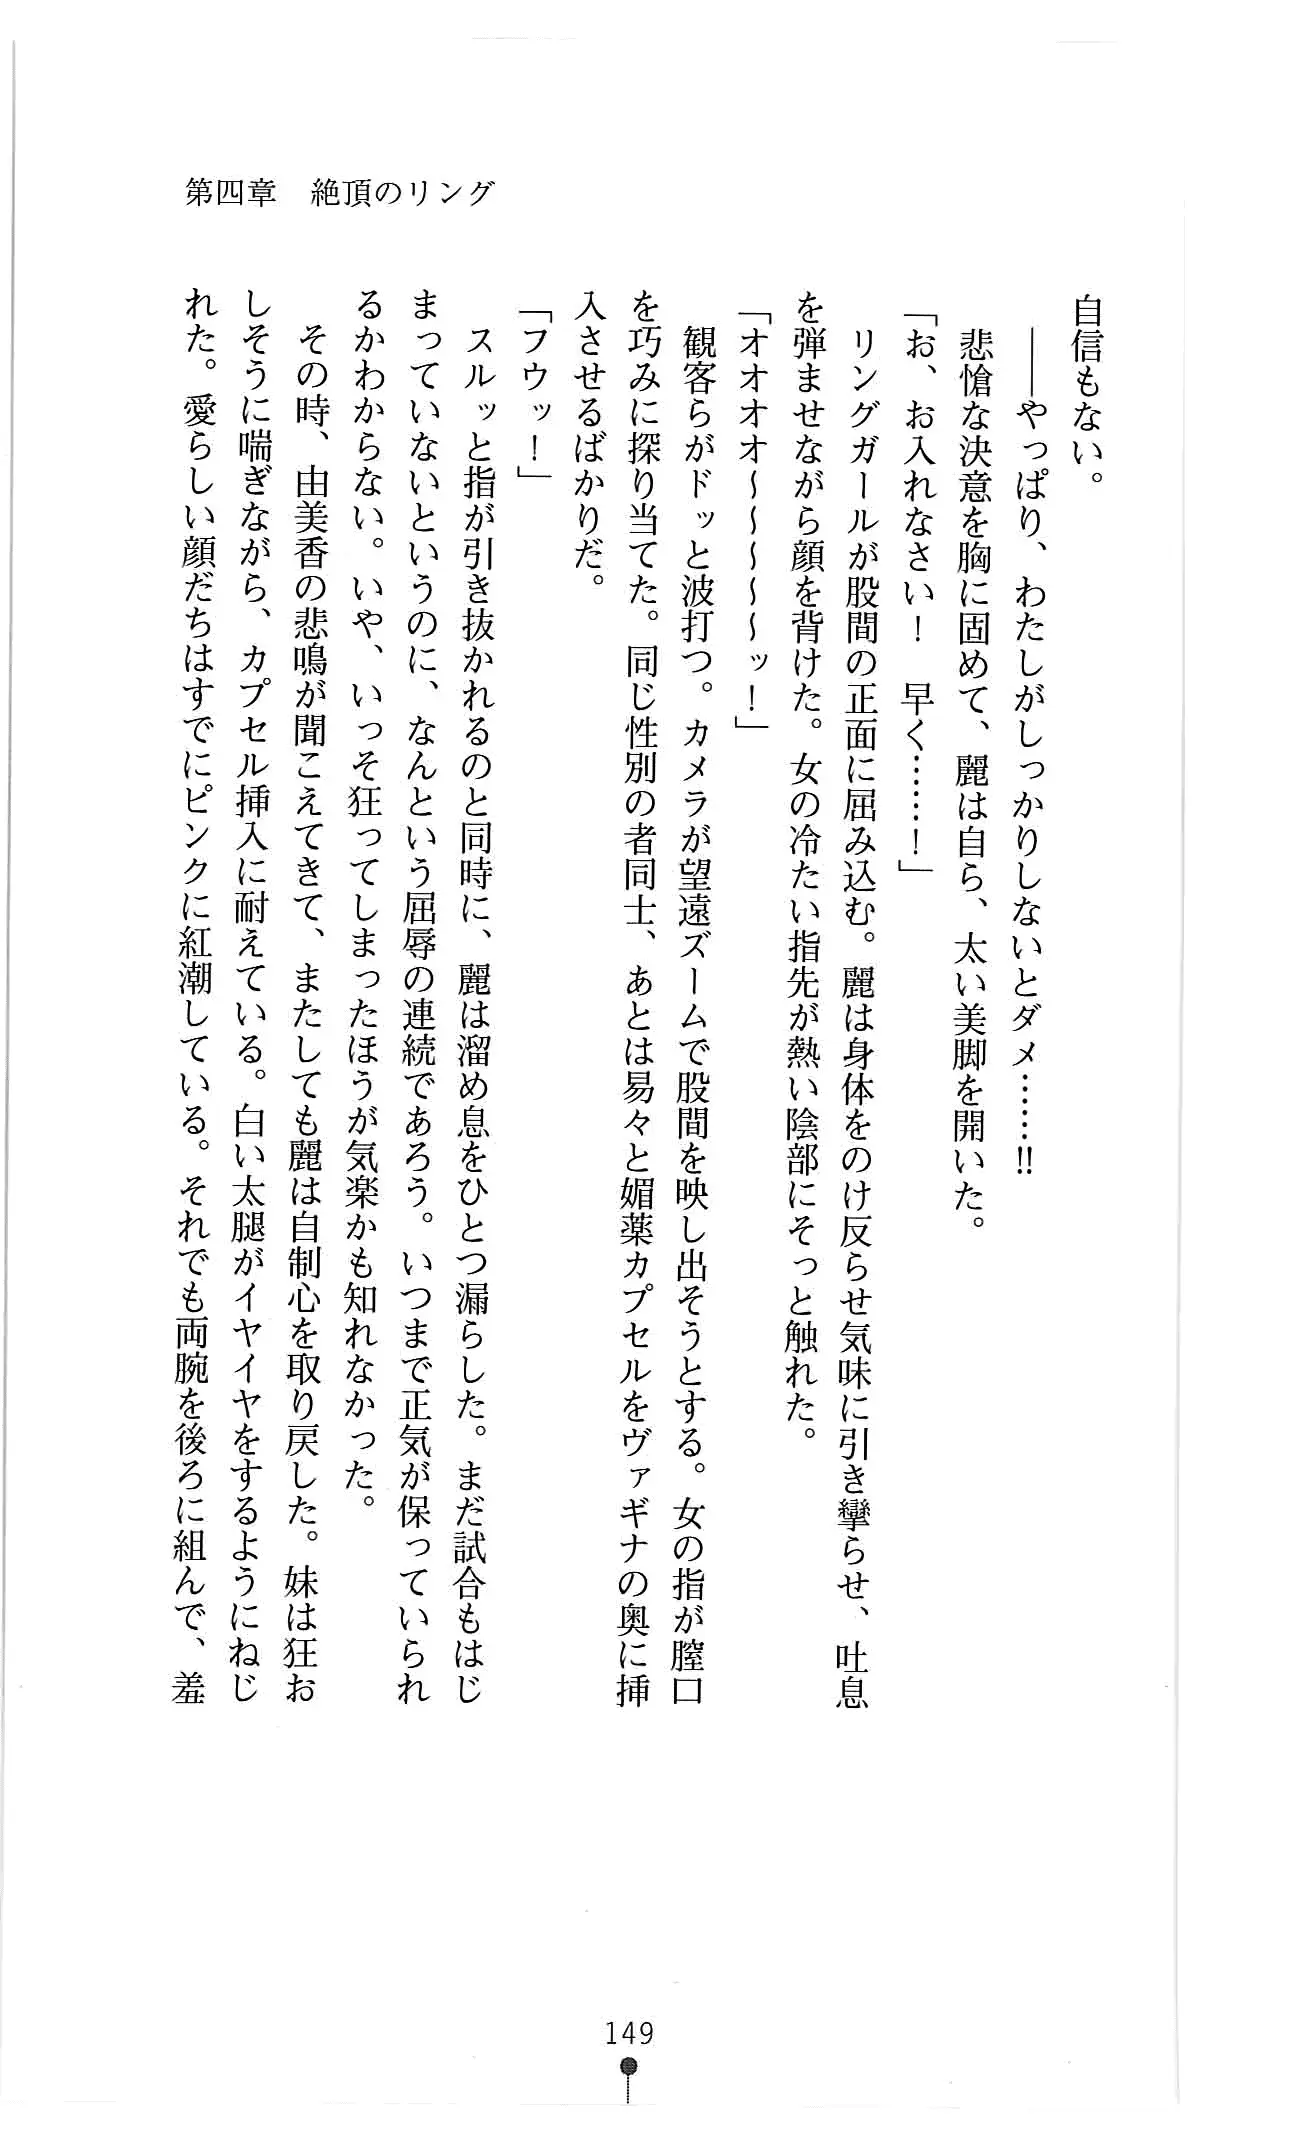 第四章　絶頂のリング
自信もない。
――やっぱり、わたしがしっかりしないとダメ……!!
悲愴な決意を胸に固めて、麗は自ら、太い美脚を開いた。
「お、お入れなさい！　早く……！」
リングガールが股間の正面に屈み込む。麗は身体をのけ反らせ気味に引き攣らせ、吐息
を弾ませながら顔を背けた。女の冷たい指先が熱い陰部にそっと触れた。
「オオオオ～～～～～ッ！」
観客らがドッと波打つ。カメラが望遠ズームで股間を映し出そうとする。女の指が膣口
を巧みに探り当てた。同じ性別の者同士、あとは易々と媚薬カプセルをヴァギナの奥に挿
入させるばかりだ。
「フウッ！」
スルッと指が引き抜かれるのと同時に、麗は溜め息をひとつ漏らした。まだ試合もはじ
まっていないというのに、なんという屈辱の連続であろう。いつまで正気が保っていられ
るかわからない。いや、いっそ狂ってしまったほうが気楽かも知れなかった。
その時、由美香の悲鳴が聞こえてきて、またしても麗は自制心を取り戻した。妹は狂お
しそうに喘ぎながら、カプセル挿入に耐えている。白い太腿がイヤイヤをするようにねじ
れた。愛らしい顔だちはすでにピンクに紅潮している。それでも両腕を後ろに組んで、羞
149